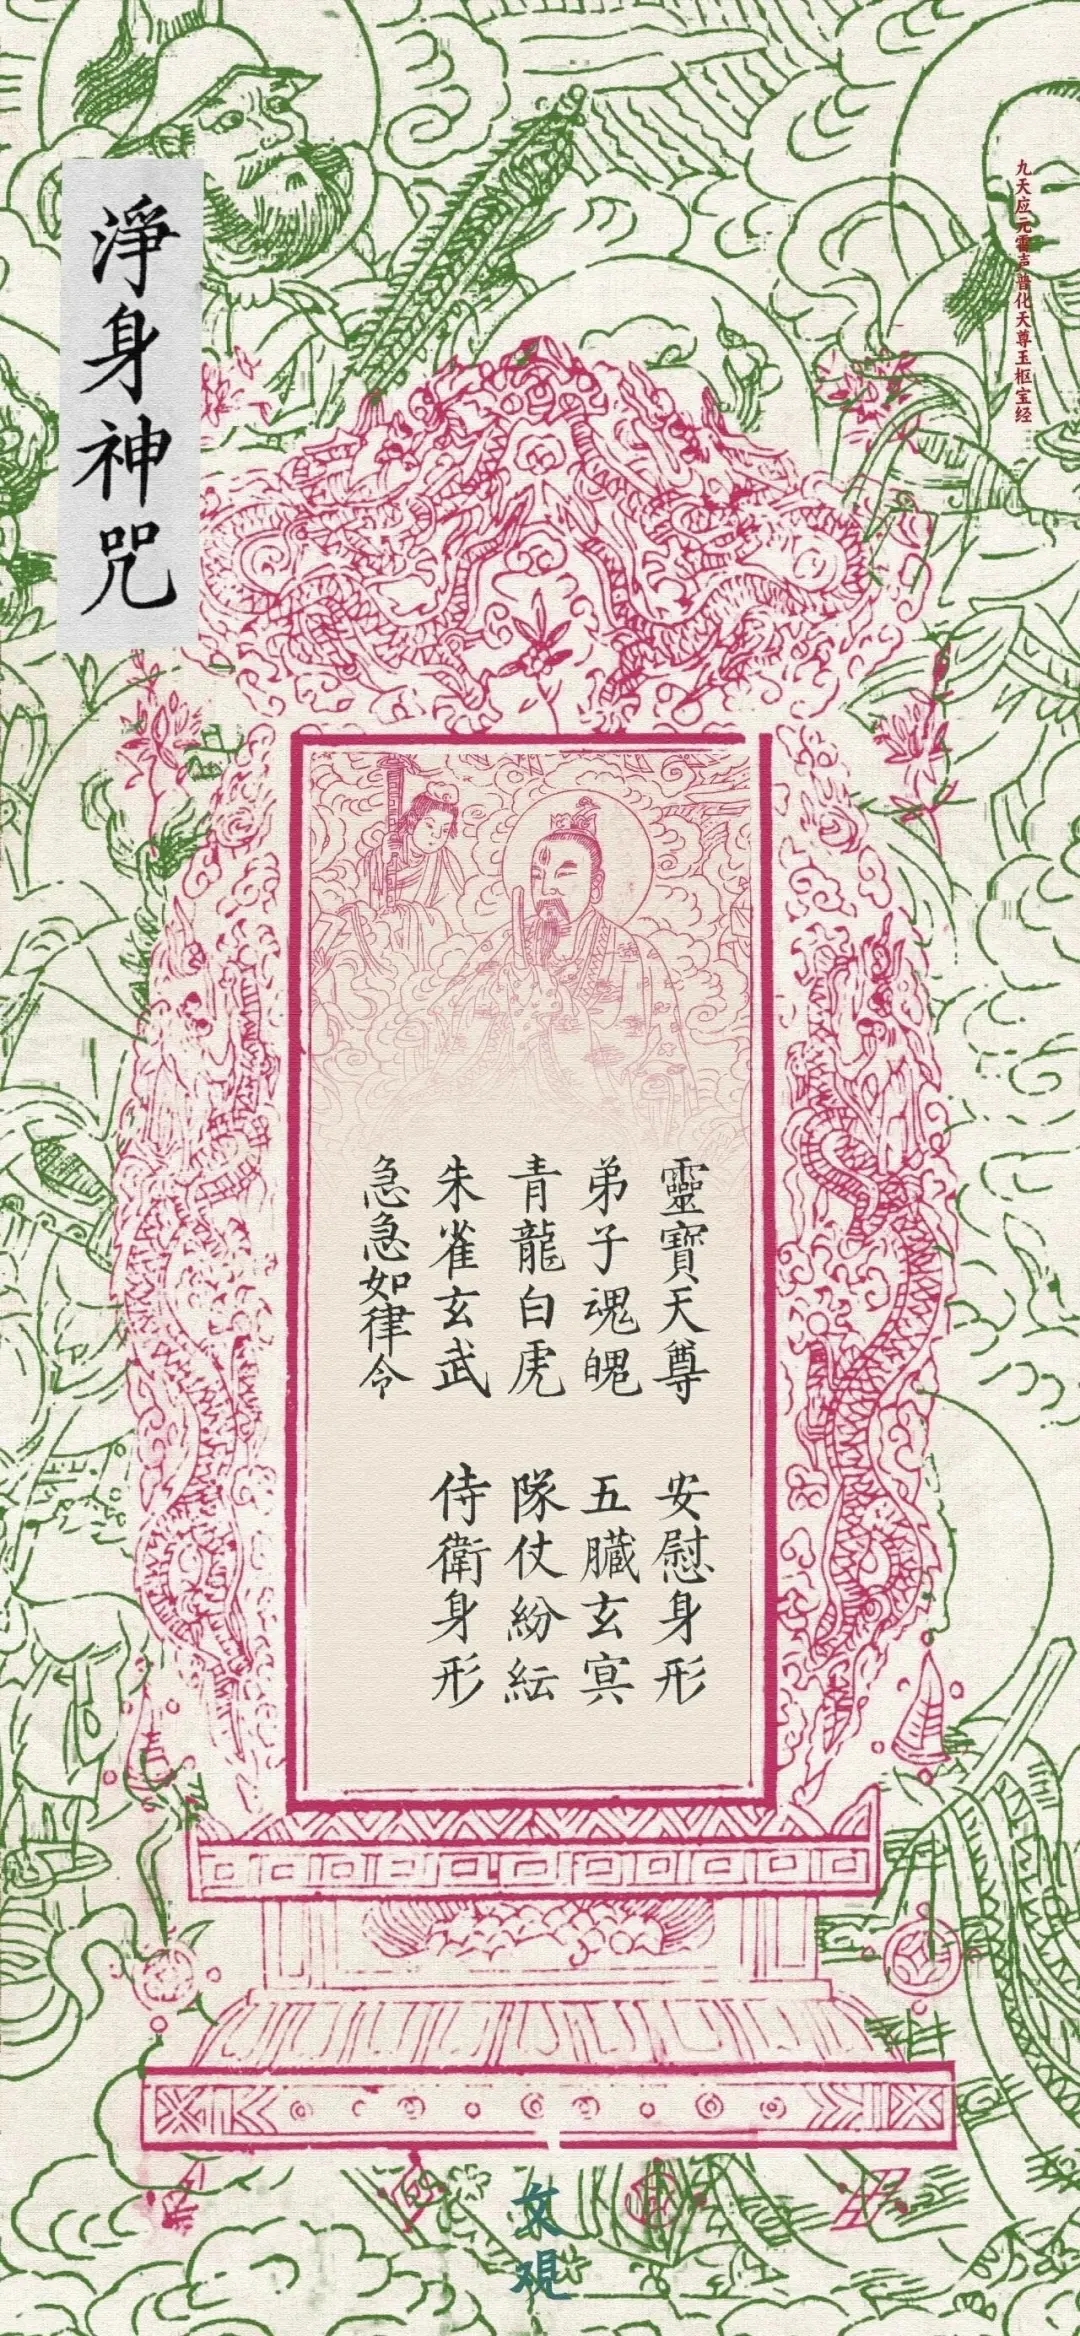 九天应元雷声普化天尊玉枢宝经
淨身神咒
靈寶天尊　安慰身形
弟子魂魄　五臟玄冥
青龍白虎　隊仗紛紜
朱雀玄武　侍衛身形
急急如律令
文观